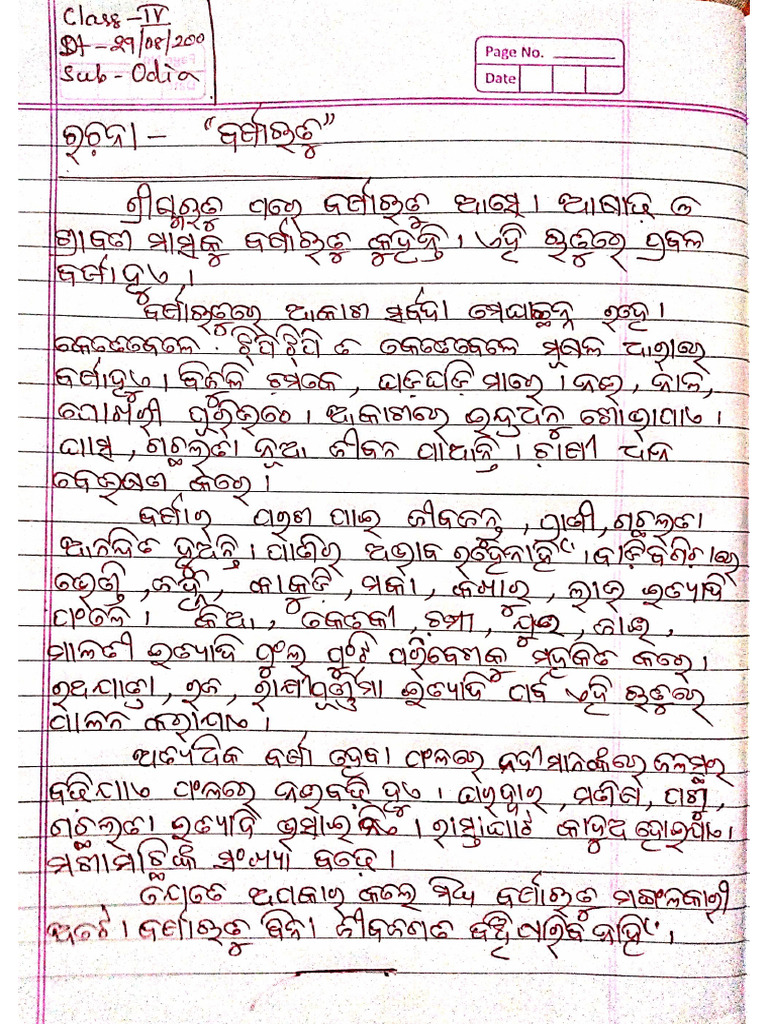 Class - IV
Dt - 29/08/200
Sub - Odia
Page No.
Date
ରଚନା - "ବର୍ଷାଋତୁ"
ଗ୍ରୀଷ୍ମଋତୁ ପରେ ବର୍ଷାଋତୁ ଆସେ । ଆଷାଢ଼ ଓ
ଶ୍ରାବଣ ମାସକୁ ବର୍ଷାଋତୁ କୁହନ୍ତି । ଏହି ଋତୁରେ ପ୍ରବଳ
ବର୍ଷା ହୁଏ ।
ବର୍ଷାଋତୁରେ ଆକାଶ ସର୍ବଦା ମେଘାଚ୍ଛନ୍ନ ରହେ ।
କେତେବେଳେ ଝିପିଝିପି ତ କେତେବେଳେ ମୂଷଳ ଧାରାରେ
ବର୍ଷା ହୁଏ । ବିଜୁଳି ଚମକେ, ଘଡ଼ଘଡ଼ି ମାରେ । ନଈ, ନାଳ,
ପୋଖରୀ ପୂରିଉଠେ । ଆକାଶରେ ଇନ୍ଦ୍ରଧନୁ ଶୋଭାପାଏ ।
ଘାସ, ଗଛଲତା ନୂଆ ଜୀବନ ପାଆନ୍ତି । ଚାଷୀ ଧାନ
ବେଉଷଣ କରେ ।
ବର୍ଷାର ପରଶ ପାଇ ଜୀବଜନ୍ତୁ, ପ୍ରାଣୀ, ଗଛଲତା
ଆନନ୍ଦିତ ହୁଅନ୍ତି । ପାଣିର ଅଭାବ ରହେନାହିଁ । ବାଡ଼ିବଗିଚାରେ
ଭେଣ୍ଡି, ଜହ୍ନି, କାକୁଡ଼ି, ମକା, କଖାରୁ, ଲାଉ ଇତ୍ୟାଦି
ଫଳେ । କିଆ, କେତକୀ, ଚମ୍ପା, ଯୁଇ, ଜାଇ,
ମାଳତୀ ଇତ୍ୟାଦି ଫୁଲ ଫୁଟି ପରିବେଶକୁ ମହକିତ କରେ ।
ରଥଯାତ୍ରା, ରଜ, ରାକ୍ଷୀପୂର୍ଣ୍ଣିମା ଇତ୍ୟାଦି ପର୍ବ ଏହି ଋତୁରେ
ପାଳନ କରାଯାଏ ।
ଅତ୍ୟଧିକ ବର୍ଷା ହେବା ଫଳରେ ନଦୀମାନଙ୍କରେ ଜଳସ୍ତର
ବଢ଼ିଯାଏ ଫଳରେ ନଇବଢ଼ି ହୁଏ । ଘରଦ୍ୱାର, ମଣିଷ, ପଶୁ,
ଗଛଲତା ଇତ୍ୟାଦି ଭସାଇ ନିଏ । ରାସ୍ତାଘାଟ କାଦୁଅ ହୋଇଯାଏ ।
ମଶାମାଛିଙ୍କ ସଂଖ୍ୟା ବଢ଼େ ।
ଯେତେ ଅପକାର କଲେ ମଧ୍ୟ ବର୍ଷାଋତୁ ମଙ୍ଗଳକାରୀ
ଅଟେ । ବର୍ଷାଋତୁ ବିନା ଜୀବଜଗତ ବଞ୍ଚିପାରିବ ନାହିଁ ।